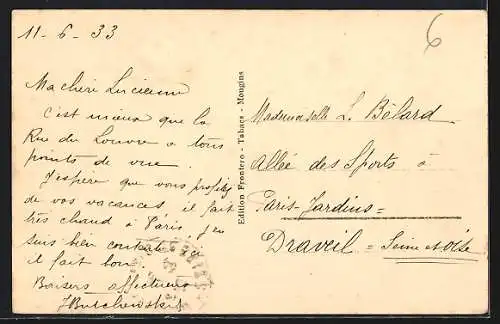 11-6-33
6
Ma chère Lucienne
C'est mieux que la
Rue du Louvre à tous
points de vue.
J'espère que vous profitez
de vos vacances il fait
très chaud à Paris. J'en
suis bien contente ici
il fait bon.
Baisers affectueux
Edition Frontero - Tabacs - Mougins
Mademoiselle L. Bélard
Allée des Sports à
Paris-Jardins=
Draveil = Seine et Oise